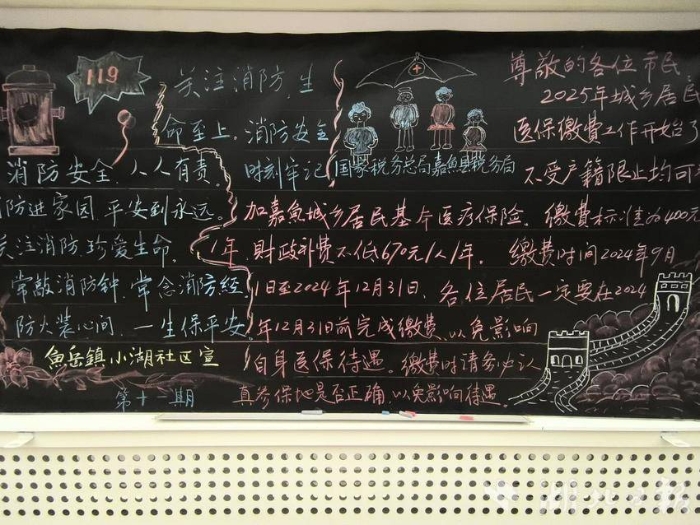 119
关注消防,生
命至上,消防安全
时刻牢记
消防安全,人人有责。
防进家园,平安到永远。
关注消防,珍爱生命,
常敲消防钟,常念消防经,
防火装心间,一生保平安
魚岳鎮小湖社区宣
第十二期
尊敬的各位市民,
2025年城乡居民
医保缴费工作开始了
国家税务总局嘉魚县税务局
不受户籍限止均可
加嘉魚城乡居民基本医疗保险,缴费标准为400元
1年,财政补费不低670元/人1年。缴费时间2024年9月
1日至2024年12月31日,各位居民一定要在2024
年12月31日前完成缴费,以免影响
自身医保待遇。缴费时请务必认
真参保地是否正确,以免影响待遇。
湖北日报